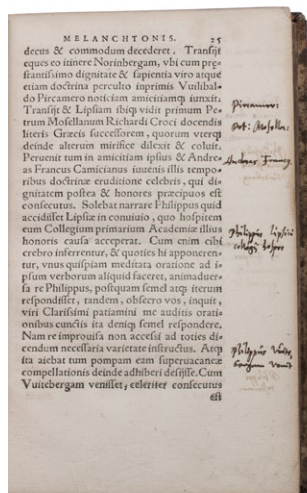 MELANCHTONIS. 25
decus & commodum decederet. Transijt
eques eo itinere Norinbergam, vbi cum prę-
stantissimo dignitate & sapientia viro atque
etiam doctrina perculto inprimis Vuilibal-
do Pircamero noticiam amicitiamq́ iunxit.
Transijt & Lipsiam ibiq́ vidit primum Pe-
trum Mosellanum Richardi Croci docendis
literis Græcis successorem, quorum vterq́
deinde alterum mirifice dilexit & coluit.
Peruenit tum in amicitiam ipsius & Andre-
as Francus Camicianus iuuenis illis tempo-
ribus doctrinæ eruditione celebris, qui di-
gnitatem postea & honores præcipuos est
consecutus. Solebat narrare Philippus quid
accidisset Lipsiæ in conuiuio, quo hospitem
eum Collegium primarium Academiæ illius
honoris causa acceperat. Cum enim cibi
crebro inferrentur, & quoties hi apponeren-
tur, vnus quispiam meditata oratione ad i-
psum verborum aliquid faceret, animaduer-
sa re Philippus, postquam semel atq́ iterum
respondisset, tandem, obsecro vos, inquit,
viri Clarissimi patiamini me auditis orati-
onibus cunctis ita deniq́ semel respondere.
Nam re improuisa non accessi ad toties di-
cendum necessaria varietate instructus. Atq́
ita aiebat tum pompam eam superuacaneæ
compellationis deinde adhiberi desijsse. Cum
Vuitebergam venisset, celeriter consecutus
est
Pircamer
Pet: Mosella.
Andreas Franc
Philippus Lipsiæ
Philippus Vuit